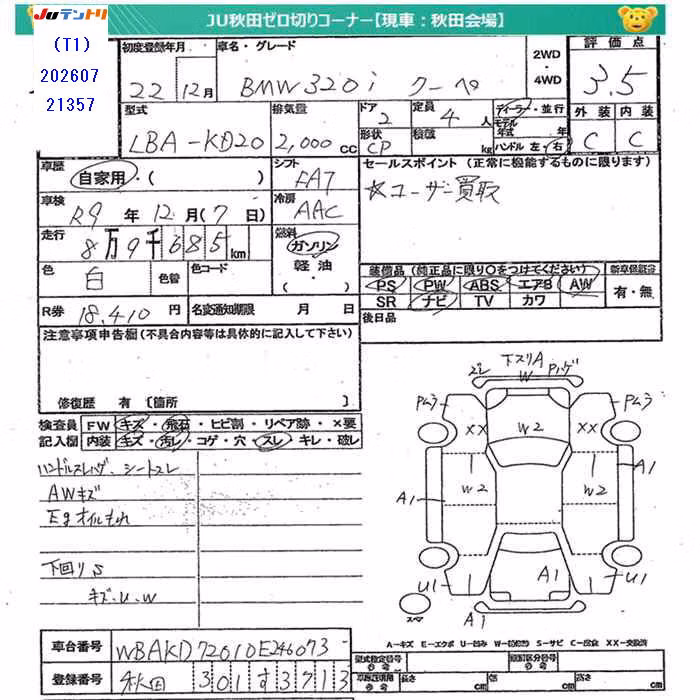 JUテントリ
JU秋田ゼロ切りコーナー【現車:秋田会場】
(T1)
202607
21357
初度登録年月
22 12月
車名・グレード
BMW320i クーペ
2WD・4WD
評価点
3.5
型式
LBA-KD20
排気量
2,000 cc
ドア
2
定員
4 人
形状
CP
積載
kg
ディーラー・並行
モデル年式 年
ハンドル 左・右
外装 内装
C C
車歴
自家用・( )
シフト
FAT
セールスポイント(正常に機能するものに限ります)
☆ユーザー買取
車検
R9年12月(7日)
冷房
AAC
走行
8万9千685km
燃料
ガソリン
軽油
・( )
色
白
色替
色コード
装備品(純正品に限り○をつけてください)
PS PW ABS エアB AW
SR ナビ TV カワ
新車保証書
有・無
R券
18,410円
名変通知期限 月 日
後日品
注意事項申告欄(不具合内容等は具体的に記入して下さい)
修復歴 有 〔箇所 〕
検査員記入欄
FW キズ・飛石・ヒビ割・リペア跡・×要
内装 キズ・汚レ・コゲ・穴・スレ・キレ・破レ
ハンドルスレハゲ、シートスレ
AWキズ
Egオイルもれ
下回りS
キズ・U・W
ズレ
下スリA
W
Pハゲ
Pムラ
Pムラ
XX
W2
XX
W2
W2
A1
A1
U1
A1
U1
A1
スペア
A-キズ E-エクボ U-凹み S-サビ C-腐食 XX-交換済
車台番号
WBAKD72010E246073
登録番号
秋田 301 す 3713
型式指定番号
参考
類別区分番号
参考
車庫証明用
参考
長さ cm
幅 cm
高さ cm